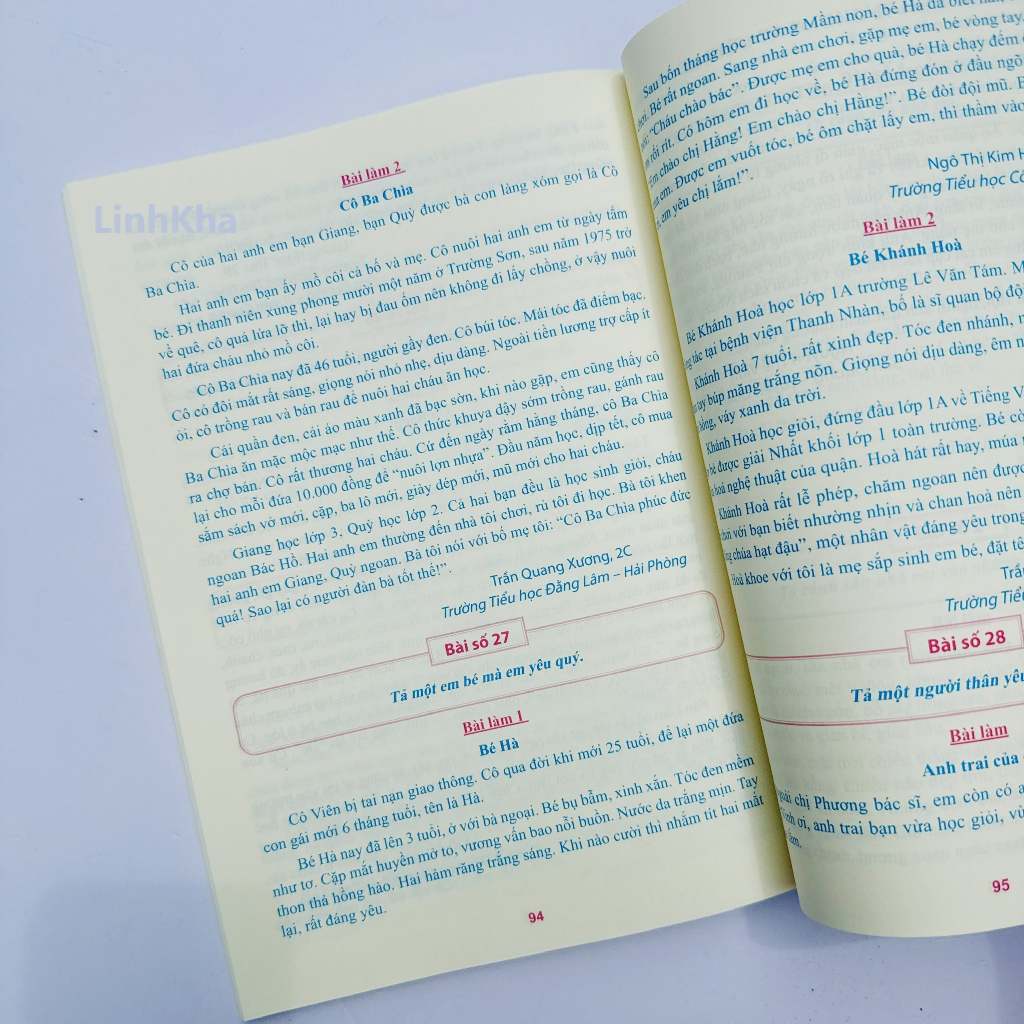 LinhKha
Bài làm 2
Cô Ba Chìa
Cô của hai anh em bạn Giang, bạn Quỳ được bà con làng xóm gọi là Cô
Ba Chìa.
Hai anh em bạn ấy mồ côi cả bố và mẹ. Cô nuôi hai anh em từ ngày tấm
bé. Đi thanh niên xung phong mười một năm ở Trường Sơn, sau năm 1975 trở
về quê, cô quá lứa lỡ thì, lại hay bị đau ốm nên không đi lấy chồng, ở vậy nuôi
hai đứa cháu nhỏ mồ côi.
Cô Ba Chìa nay đã 46 tuổi, người gầy đen. Cô búi tóc. Mái tóc đã điểm bạc.
Cô có đôi mắt rất sáng, giọng nói nhỏ nhẹ, dịu dàng. Ngoài tiền lương trợ cấp ít
ỏi, cô trồng rau và bán rau để nuôi hai cháu ăn học.
Cái quần đen, cái áo màu xanh đã bạc sờn, khi nào gặp, em cũng thấy cô
Ba Chìa ăn mặc mộc mạc như thế. Cô thức khuya dậy sớm trồng rau, gánh rau
ra chợ bán. Cô rất thương hai cháu. Cứ đến ngày rằm hằng tháng, cô Ba Chìa
lại cho mỗi đứa 10.000 đồng để “nuôi lợn nhựa”. Đầu năm học, dịp tết, cô mua
sắm sách vở mới, cặp, ba lô mới, giày dép mới, mũ mới cho hai cháu.
Giang học lớp 3, Quỳ học lớp 2. Cả hai bạn đều là học sinh giỏi, cháu
ngoan Bác Hồ. Hai anh em thường đến nhà tôi chơi, rủ tôi đi học. Bà tôi khen
hai anh em Giang, Quỳ ngoan. Bà tôi nói với bố mẹ tôi: “Cô Ba Chìa phúc đức
quá! Sao lại có người đàn bà tốt thế!”.
Trần Quang Xương, 2C
Trường Tiểu học Đằng Lâm – Hải Phòng
Bài số 27
Tả một em bé mà em yêu quý.
Bài làm 1
Bé Hà
Cô Viên bị tai nạn giao thông. Cô qua đời khi mới 25 tuổi, để lại một đứa
con gái mới 6 tháng tuổi, tên là Hà.
Bé Hà nay đã lên 3 tuổi, ở với bà ngoại. Bé bụ bẫm, xinh xắn. Tóc đen mềm
như tơ. Cặp mắt huyền mở to, vương vấn bao nỗi buồn. Nước da trắng mịn. Tay
thon thả hồng hào. Hai hàm răng trắng sáng. Khi nào cười thì nhắm tít hai mắt
lại, rất đáng yêu.
94
Sau bốn tháng học trường Mầm non, bé Hà đã biết
Bé rất ngoan. Sang nhà em chơi, gặp mẹ em, bé vòng tay,
“Cháu chào bác”. Được mẹ em cho quà, bé Hà chạy đếm
rối rít. Có hôm em đi học về, bé Hà đứng đón ở đầu ngõ
chào chị Hằng! Em chào chị Hằng!”. Bé đòi đội mũ.
em. Được em vuốt tóc, bé ôm chặt lấy em, thì thầm vào
em yêu chị lắm!”.
Ngô Thị Kim
Trường Tiểu học
Bài làm 2
Bé Khánh Hoà
Bé Khánh Hoà học lớp 1A trường Lê Văn Tám.
tác tại bệnh viện Thanh Nhàn, bố là sĩ quan bộ
Khánh Hoà 7 tuổi, rất xinh đẹp. Tóc đen nhánh,
tay búp măng trắng nõn. Giọng nói dịu dàng, êm
váy xanh da trời.
Khánh Hoà học giỏi, đứng đầu lớp 1A về Tiếng
bé được giải Nhất khối lớp 1 toàn trường. Bé
nghệ thuật của quận. Hoà hát rất hay, múa
Khánh Hoà rất lễ phép, chăm ngoan nên được
với bạn biết nhường nhịn và chan hoà nên
chúa hạt đậu”, một nhân vật đáng yêu trong
Hoà khoe với tôi là mẹ sắp sinh em bé, đặt
Trường
Bài số 28
Tả một người thân
Bài làm
Anh trai của
chị Phương bác sĩ, em còn có
ơi, anh trai bạn vừa học giỏi,
95